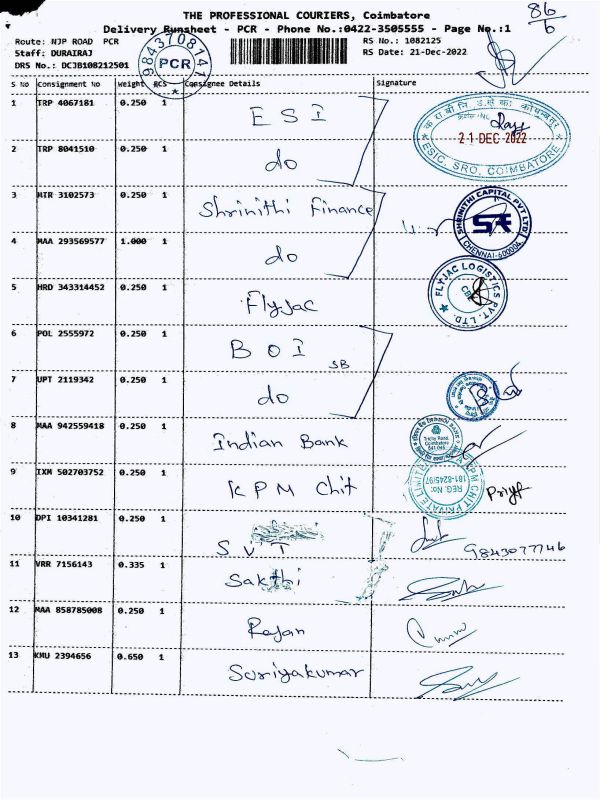 THE PROFESSIONAL COURIERS, Coimbatore
Delivery Runsheet - PCR - Phone No.:0422-3505555 - Page No.:1
86
6
Route: NJP ROAD PCR
RS No.: 1082125
Staff: DURAIRAJ
RS Date: 21-Dec-2022
DRS No.: DCJB108212501
9843708141
PCR
S No Consignment No Weight PCS Consignee Details Signature
1 TRP 4067181 0.250 1 ESI
21 DEC 2022
ESIC, SRO, COIMBATORE
2 TRP 8041510 0.250 1 do
3 MTR 3102573 0.250 1 Shrinithi Finance
SHRINITHI CAPITAL PVT LTD
CHENNAI-600006
4 MAA 293569577 1.000 1 do
5 HRD 343314452 0.250 1 Flyjac
FLYJAC LOGISTICS PVT. LTD.
6 POL 2555972 0.250 1 BOI
SB
7 UPT 2119342 0.250 1 do
8 MAA 942559418 0.250 1 Indian Bank
Trichy Road,
Coimbatore
9 IXM 502703752 0.250 1 KPM Chit
KPM CHIT PRIVATE LIMITED
REG. No:
181-8245/97
Priya
10 DPI 10341281 0.250 1 SVT
9843077746
11 VRR 7156143 0.335 1 Sakthi
12 MAA 858785008 0.250 1 Rajan
13 KMU 2394656 0.650 1 Suriyakumar